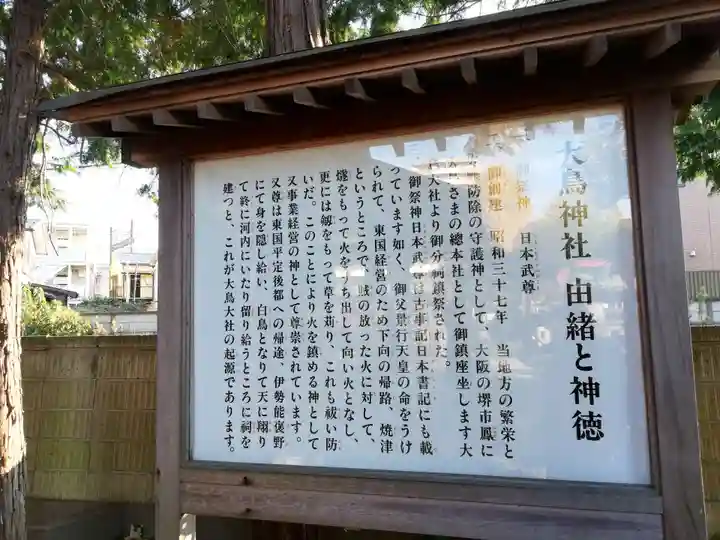 大鳥神社 由緒と神徳
御祭神 日本武尊
御創建 昭和三十七年 当地方の繁栄と
防除の守護神として、大阪の堺市鳳に
さまの總本社として御鎮座坐します大
大社より御分祠鎮祭された。
御祭神日本武尊は古事記日本書記にも載
っています如く、御父景行天皇の命をうけ
られて、東国経営のため下向の帰路、焼津
というところで、賊の放った火に対して、
燧をもって火をうち出して向い火となし、
更には剱をもって草を苅り、これも祓い防
いだ。このことにより火を鎮める神として
又事業経営の神として尊崇されています。
又尊は東国平定後都への帰途、伊勢能褒野
にて身を隠し給い、白鳥となりて天に翔り
て終に河内にいたり留り給うところに祠を
建つと、これが大鳥大社の起源であります。